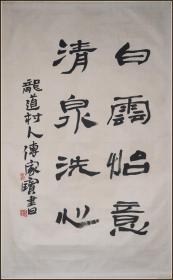 白雲怡意
清泉洗心
龍道村人傅家寶書